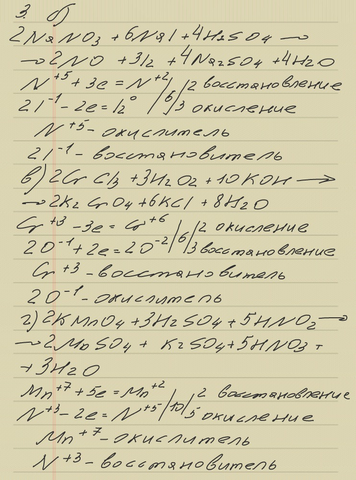 3. б)
2NaNO3 + 6NaI + 4H2SO4 →
→ 2NO + 3I2 + 4Na2SO4 + 4H2O
N+5 + 3e = N+2 /6/ 2 восстановление
2I-1 - 2e = I2° /6/ 3 окисление
N+5 - окислитель
2I-1 - восстановитель
в) 2CrCl3 + 3H2O2 + 10KOH →
→ 2K2CrO4 + 6KCl + 8H2O
Cr+3 - 3e = Cr+6 /6/ 2 окисление
2O-1 + 2e = 2O-2 /6/ 3 восстановление
Cr+3 - восстановитель
2O-1 - окислитель
г) 2KMnO4 + 3H2SO4 + 5HNO2 →
→ 2MnSO4 + K2SO4 + 5HNO3 +
+ 3H2O
Mn+7 + 5e = Mn+2 /10/ 2 восстановление
N+3 - 2e = N+5 /10/ 5 окисление
Mn+7 - окислитель
N+3 - восстановитель